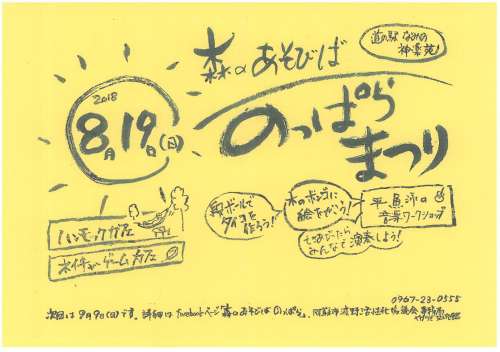 道の駅 なみの
神楽苑!
森のあそびば
のっぱら
まつり
2018
8月19日(日)
ハンモックカフェ
ネイチャーゲームカフェ
段ボールで
タイコを
作ろう!
木のボンゴに
絵をかこう!
平島沛の
音楽ワークショップ
みんなで演奏しよう!
0967-23-0555
次回は9月9日(日)です。詳細はfacebookページ「森のあそびば のっぱら」、阿蘇市波野活性化協議会事務局